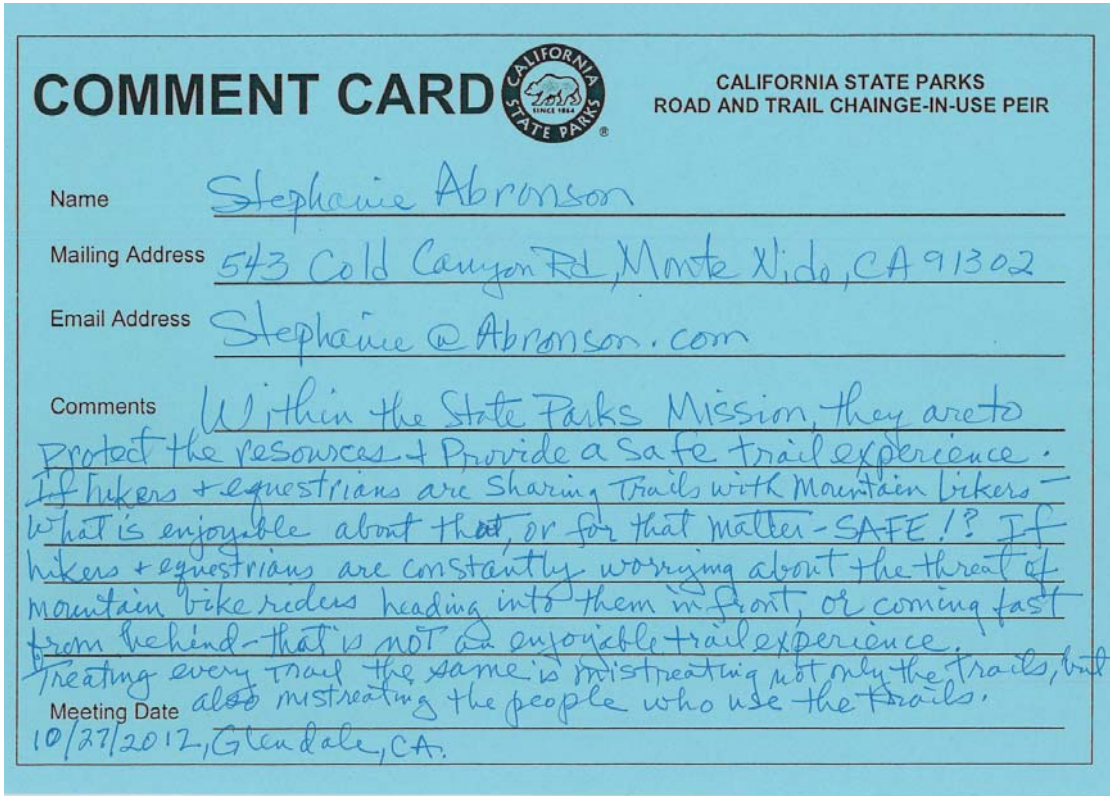 COMMENT CARD
CALIFORNIA STATE PARKS
SINCE 1864
®
CALIFORNIA STATE PARKS
ROAD AND TRAIL CHAINGE-IN-USE PEIR
Name Stephanie Abronson
Mailing Address 543 Cold Canyon Rd, Monte Nido, CA 91302
Email Address Stephanie @ Abronson.com
Comments Within the State Parks Mission, they are to
protect the resources + Provide a safe trail experience.
If hikers + equestrians are sharing Trails with Mountain bikers -
what is enjoyable about that, or for that matter - SAFE!? If
hikers + equestrians are constantly worrying about the threat of
mountain bike riders heading into them in front, or coming fast
from behind - that is not an enjoyable trail experience.
Treating every Trail the same is mistreating not only the trails, but
also mistreating the people who use the trails.
Meeting Date
10/27/2012, Glendale, CA.